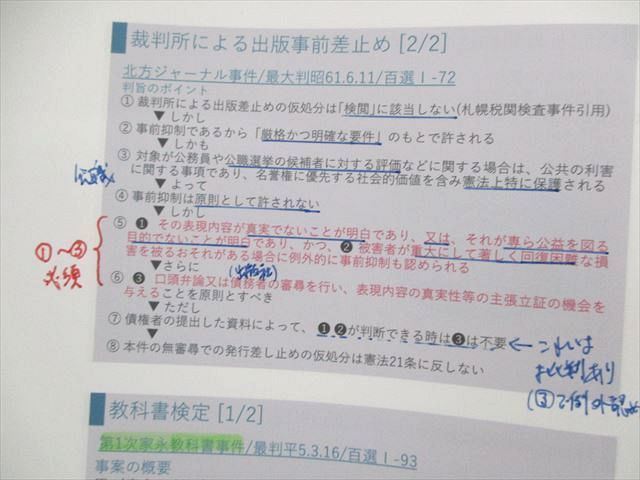 裁判所による出版事前差止め [2/2]
北方ジャーナル事件/最大判昭61.6.11/百選Ⅰ-72
判旨のポイント
① 裁判所による出版差止めの仮処分は「検閲」に該当しない(札幌税関検査事件引用)
▼しかし
② 事前抑制であるから「厳格かつ明確な要件」のもとで許される
▼しかも
③ 対象が公務員や公職選挙の候補者に対する評価などに関する場合は、公共の利害
に関する事項であり、名誉権に優先する社会的価値を含み憲法上特に保護される
▼よって
④ 事前抑制は原則として許されない
▼しかし
⑤ ❶ その表現内容が真実でないことが明白であり、又は、それが専ら公益を図る
目的でないことが明白であり、かつ、❷ 被害者が重大にして著しく回復困難な損
害を被るおそれがある場合に例外的に事前抑制も認められる
▼さらに
(出版社)
⑥ ❸ 口頭弁論又は債務者の審尋を行い、表現内容の真実性等の主張立証の機会を
与えることを原則とすべき
▼ただし
⑦ 債権者の提出した資料によって、❶❷が判断できる時は❸は不要
▼
⑧ 本件の無審尋での発行差し止めの仮処分は憲法21条に反しない
①～③
必須
←これは
批判あり
教科書検定 [1/2]
第1次家永教科書事件/最判平5.3.16/百選Ⅰ-93
事案の概要